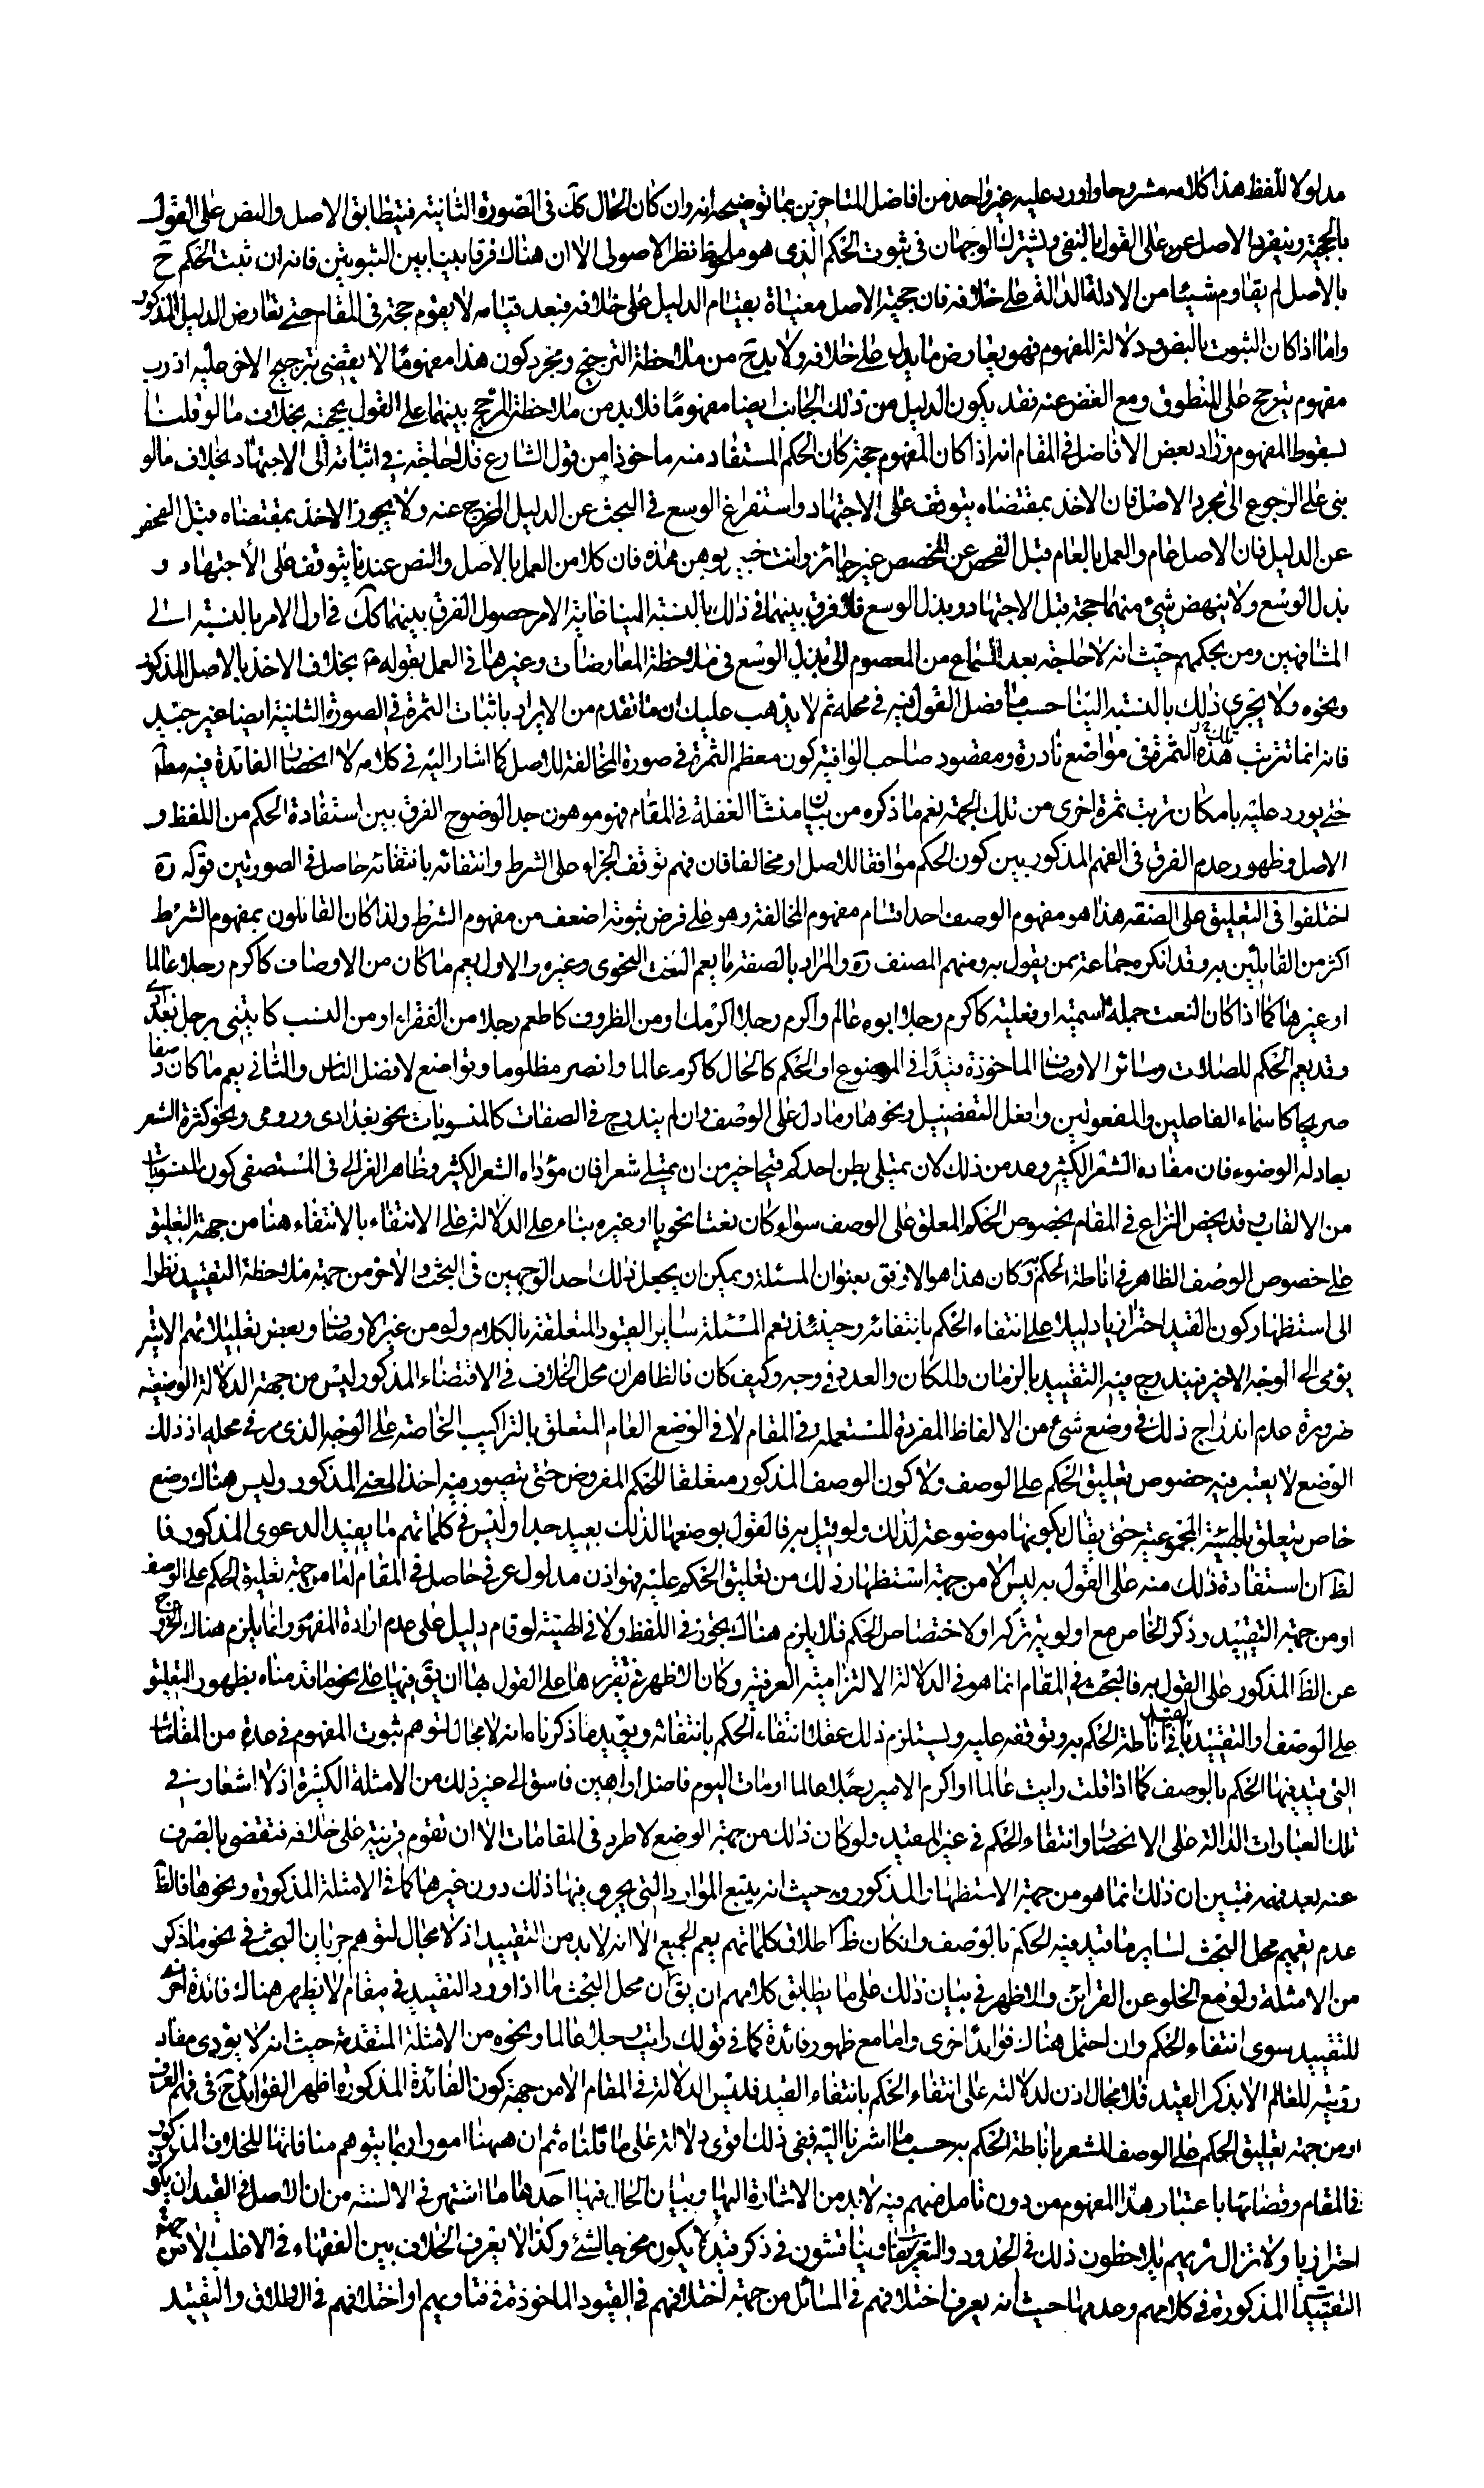 مدلولا للفظ هذا كلامه مشروحا واورد عليه غير واحد من افاضل المتاخرين بما توضيحه انه وان كان الحال كك فى الصورة الثانية فيتطابق الاصل والنص على القول
بالحجية وينفرد الاصل على القول بالنفى ويشترك الوجهان فى ثبوت الحكم الذى هو ملحوظ نظر الاصولى الا ان هناك فرقا بينا بين الثبوتين فانه ان ثبت الحكم ح
بالاصل لم يقاوم شيئا من الادلة الدالة على خلافه فان حجية الاصل مغياة بقيام الدليل على خلافه فبعد قيامه لا يقوم حجة فى المقام حتى تعارض الدليل المذكور
واما اذا كان الثبوت بالنص ودلالة المفهوم فهو يعارض ما يدل على خلافه ولا بد ح من ملاحظة الترجيح ومجرد كون هذا مفهوما لا يقضى بترجيح الاخر عليه اذ رب
مفهوم يترجح على المنطوق ومع الغض عنه فقد يكون الدليل من ذلك الجانب ايضا مفهومًا فلا بد من ملاحظة المرجح بينهما على القول بحجيته بخلاف ما لو قلنا
بسقوط المفهوم وزاد بعض الافاضل فى المقام انه اذا كان المفهوم حجة كان الحكم المستفاد منه ماخوذا من قول الشارع فلا حاجة فى اثباته الى الاجتهاد بخلاف ما لو
بنى على الرجوع الى مجرد الاصل فان الاخذ بمقتضاه يتوقف على الاجتهاد واستفراغ الوسع فى البحث عن الدليل المخرج عنه ولا يجوز الاخذ بمقتضاه قبل الفحص
عن الدليل فان الاصل عام والعمل بالعام قبل الفحص عن المخصص غير جائز وانت خبير بوهن هذه فان كلا من العمل بالاصل والنص عندنا يتوقف على الاجتهاد و
بذل الوسع ولا ينهض شئ منهما حجة قبل الاجتهاد وبذل الوسع فلا فرق بينهما فى ذلك بالنسبة الينا غاية الامر حصول الفرق بينهما كك فى اول الامر بالنسبة الى
المشافهين ومن بحكمهم حيث انه لا حاجة بعد السماع من المعصوم الى بذل الوسع فى ملاحظة المعارضات وغيرها فى العمل بقوله بخلاف الاخذ بالاصل المذكور
ونحوه ولا يجرى ذلك بالنسبة الينا حسب ما فصل القول فيه فى محله ثم لا يذهب عليك ان ما تقدم من الايراد باثبات الثمرة فى الصورة الثانية ايضا غير جيد
فانه انما تترتب تلك هذه الثمرة فى مواضع نادرة ومقصود صاحب الوافية كون معظم الثمرة فى صورة المخالفة للاصل كما اشار اليه فى كلامه لا انحصار الفائدة فيه مط
حتى يورد عليه بامكان ترتب ثمرة اخرى من تلك الجهة نعم ما ذكره من بيان منشأ الغفلة فى المقام فهو موهون جدا لوضوح الفرق بين استفادة الحكم من اللفظ و
الاصل وظهور عدم الفرق فى الفهم المذكور بين كون الحكم موافقا للاصل او مخالفا فان فهم توقف الجزاء على الشرط وانتفائه بانتفائه حاصل فى الصورتين قوله ره
اختلفوا فى التعليق على الصفة هذا هو مفهوم الوصف احد اقسام مفهوم المخالفة وهو على فرض ثبوته اضعف من مفهوم الشرط ولذا كان القائلون بمفهوم الشرط
اكثر من القائلين به وقد انكره جماعة ممن يقول به ومنهم المصنف ره والمراد بالصفة ما يعم النعت النحوى وغيره والاول يعم ما كان من الاوصاف كاكرم رجلا عالما
او غيرها كما اذا كان النعت جملة اسمية او فعلية كاكرم رجلا ابوه عالم واكرم رجلا اكرمك او من الظروف كاطعم رجلا من الفقراء او من النسب كايتنى برجل بغدادى
وقد يعم الحكم للصلات وسائر الاوصاف الماخوذة قيدًا فى الموضوع او الحكم كالحال كاكرمه عالما وانصره مظلوما وتواضع لافضل الناس والثانى يعم ما كان وصفا
صريحا كاسماء الفاعلين والمفعولين وافعل التفضيل ونحوها وما دل على الوصف وان لم يندرج فى الصفات كالمنسوبات نحو بغدادى ورومى ونحو كثرة الشعر
يعادله الوضوء فان مفاده الشعر الكثير وعد من ذلك لان يمتلى بطن احدكم قيحا خير من ان يمتلى شعرا فان مؤداه الشعر الكثير وظاهر الغزالى فى المستصفى كون المنسوبات
من الالقاب وقد يخص النزاع فى المقام بخصوص الحكم المعلق على الوصف سواء كان نعتا نحويا او غيره بناء على الدلالة على الانتفاء بالانتفاء هنا من جهة التعليق
على خصوص الوصف الظاهر فى اناطة الحكم به وكان هذا هو الاوفق بعنوان المسئلة ويمكن ان يجعل ذلك احد الوجهين فى البحث والاخر من جهة ملاحظة التقييد نظرا
الى استظهار كون القيد احترازيا دليلا على انتفاء الحكم بانتفائه وحينئذ تعم المسئلة ساير القيود المتعلقة بالكلام ولو من غير الاوصاف وبعض تعليلاتهم الاتية
يومى الى الوجه الاخير فيندرج فيه التقييد بالزمان والمكان والعدد فى وجه وكيف كان فالظاهر ان محل الخلاف فى الاقتضاء المذكور ليس من جهة الدلالة الوضعية
ضرورة عدم اندراج ذلك فى وضع شئ من الالفاظ المفردة المستعملة فى المقام لا فى الوضع العام المتعلق بالتراكيب الخاصة على الوجه الذى مر فى محله اذ ذلك
الوضع لا يعتبر فيه خصوص تعليق الحكم على الوصف ولا كون الوصف المذكور متعلقا للحكم المفروض حتى يتصور فيه اخذ المعنى المذكور وليس هناك وضع
خاص يتعلق بالهيئة المجموعية حتى يقال بكونها موضوعة لذلك ولو قيل به فالقول بوضعها لذلك بعيد جدا وليس فى كلماتهم ما يفيد الدعوى المذكور فا
لظ ان استفادة ذلك منه على القول به ليس الا من جهة استظهار ذلك من تعليق الحكم عليه فهو اذن مدلول عرفى حاصل فى المقام اما من جهة تعليق الحكم على الوصف
او من جهة التقييد وذكر الخاص مع اولوية تركه لولا اختصاص الحكم فلا يلزم هناك تجوز فى اللفظ ولا فى الهيئة لو قام دليل على عدم ارادة المفهوم وانما يلزم هناك الخروج
عن الظ المذكور على القول به فالبحث فى المقام انما هو فى الدلالة الالتزامية العرفية وكان الاظهر فى تقريرها على القول بها ان يق فيها على نحو ما قدمناه بظهور التعليق
على الوصف او التقييد بالقيد فى اناطة الحكم به وتوقفه عليه ويستلزم ذلك عقلا انتفاء الحكم بانتفائه ويؤيد ما ذكرناه انه لا مجال لتوهم ثبوت المفهوم فى عدة من المقامات
التى قيد فيها الحكم بالوصف كما اذا قلت رايت عالما او اكرم الامير رجلا عالما او مات اليوم فاضل او اهين فاسق الى غير ذلك من الامثلة الكثيرة اذ لا اشعار فى
تلك العبارات الدالة على الانحصار وانتفاء الحكم فى غير المقيد ولو كان ذلك من جهة الوضع لاطرد فى المقامات الا ان تقوم قرينة على خلافه فتقضى بالصرف
عنه بعد فهمه فتبين ان ذلك انما هو من جهة الاستظهار المذكور وحيث انه يتبع الموارد التى يجرى فيها ذلك دون غيرها كما فى الامثلة المذكورة ونحوها فالظ
عدم تعميم محل البحث لساير ما قيد فيه الحكم بالوصف وان كان ظ اطلاق كلماتهم يعم الجميع الا انه لا بد من التقييد اذ لا مجال لتوهم جريان البحث فى نحو ما ذكر
من الامثلة ولو مع الخلو عن القراين والاظهر فى بيان ذلك على ما يطابق كلامهم ان يق ان محل البحث ما اذا ورد التقييد فى مقام لا يظهر هناك فائدة اخرى
للتقييد سوى انتفاء الحكم وان احتمل هناك فوايد اخرى واما مع ظهور فائدة كما فى قولك رايت رجلا عالما ونحوه من الامثلة المتقدمة حيث انه لا يؤدى مفاد
رؤيته للعالم الا بذكر القيد فلا مجال اذن لدلالته على انتفاء الحكم بانتفاء القيد فليس الدلالة فى المقام الا من جهة كون الفائدة المذكورة اظهر الفوايد ح فى فهم العرف
او من جهة تعليق الحكم على الوصف المشعر باناطة الحكم به حسب ما اشرنا اليه ففى ذلك اقوى دلالة على ما قلناه ثم ان ههنا امورا ربما يتوهم منافاتها للخلاف المذكور
فى المقام وقضائها باعتبار هذا المفهوم من دون تامل منهم فيه لا بد من الاشارة اليها وبيان الحال فيها احدها ما اشتهر فى الالسنة من ان الاصل فى القيد ان يكون
احترازيا ولا تزال تريهم يلاحظون ذلك فى الحدود والتعريفات ويناقشون فى ذكر قيد لا يكون مخرجا لشئ وكذا لا يعرف الخلاف بين الفقهاء فى الاغلب الا من جهة
التقييدات المذكورة فى كلامهم وعدمها حيث انه يعرف اختلافهم فى المسائل من جهة اختلافهم فى القيود الماخوذة فى فتاويهم او اختلافهم فى الاطلاق والتقييد